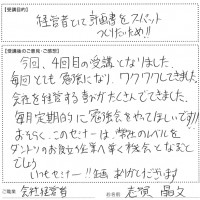 【受講目的】
経営者として計画書をズバット
つけたいため!!
【受講後のご意見・ご感想】
今回、4回目の受講となりました。
毎回とても勉強になり、ワクワクしてきました。
会社を経営する事がたくさんでてきました。
毎月定期的に勉強会をやってほしいです!!
おそらく、このセミナーは、弊社のレベルを
ダントツのお役立ち企業へ導く機会となること
でしょう
いつもセミナー!!企画 ありがとうございます
ご職業 会社経営者
お名前 志賀 晶文